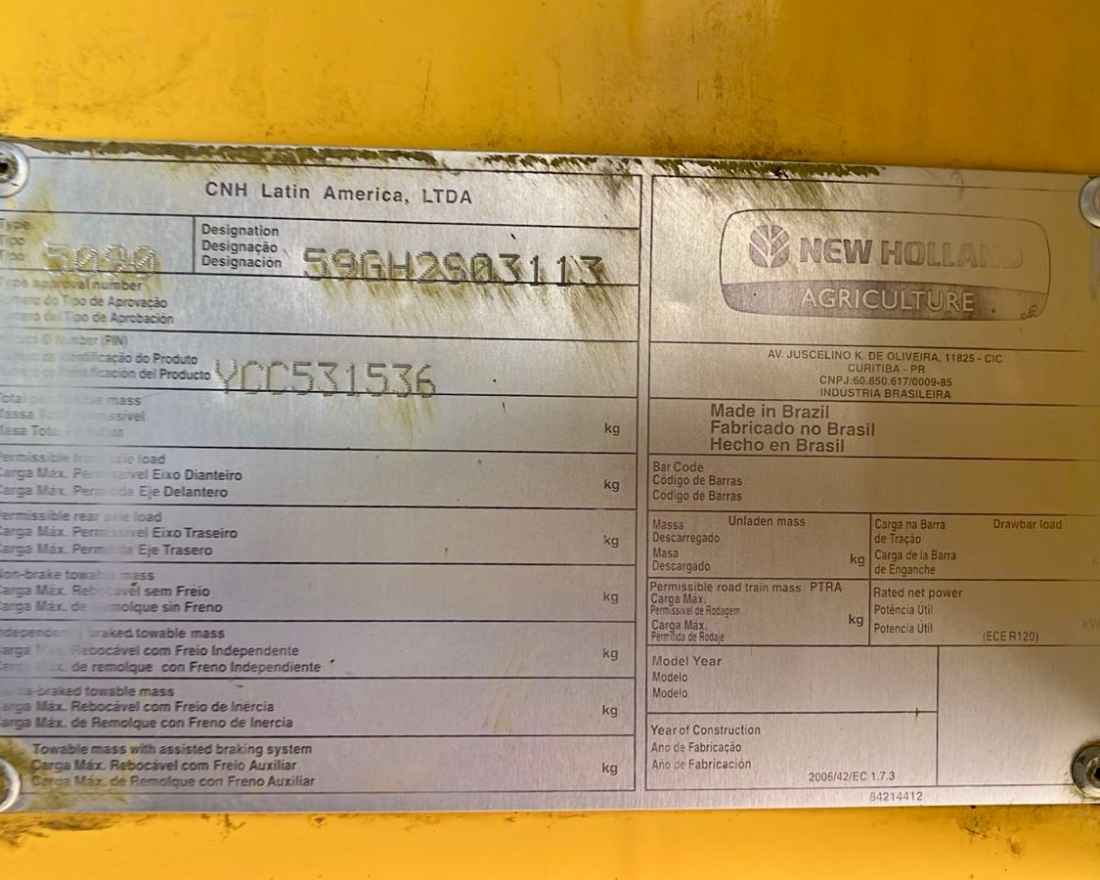 CNH Latin America, LTDA
Type
Tipo
Tipo
5090
Designation
Designação
Designación
59GH2S03113
Type approval number
Número do Tipo de Aprovação
Número del Tipo de Aprobación
ID Number (PIN)
Identificação do Produto
del Producto
YCC531536
Total mass
Massa
Masa
kg
Permissible load
Carga Máx. Eixo Dianteiro
Carga Máx. Eje Delantero
kg
Permissible rear axle load
Carga Máx. Permissível Eixo Traseiro
Carga Máx. Eje Trasero
kg
Non-brake towable mass
Carga Máx. Rebocável sem Freio
Carga Máx. de Remolque sin Freno
kg
Independent braked towable mass
Carga Máx. Rebocável com Freio Independente
Carga Máx. de remolque con Freno Independiente
kg
braked towable mass
Carga Máx. Rebocável com Freio de Inércia
Carga Máx. de Remolque con Freno de Inercia
kg
Towable mass with assisted braking system
Carga Máx. Rebocável com Freio Auxiliar
Carga Máx. de Remolque con Freno Auxiliar
kg
NEW HOLLAND
AGRICULTURE
AV. JUSCELINO K. DE OLIVEIRA, 11825 - CIC
CURITIBA - PR
CNPJ:60.850.617/0009-85
INDÚSTRIA BRASILEIRA
Made in Brazil
Fabricado no Brasil
Hecho en Brasil
Bar Code
Código de Barras
Código de Barras
Massa Unladen mass
Descarregado
Masa
Descargado
kg
Carga na Barra Drawbar load
de Tração
Carga de la Barra
de Enganche
Permissible road train mass PTRA
Carga Máx.
Permissível de Rodagem
Carga Máx.
Permitida de Rodaje
kg
Rated net power
Potência Útil
Potencia Útil
(ECE R120)
kW
Model Year
Modelo
Modelo
Year of Construction
Ano de Fabricação
Año de Fabricación
2006/42/EC 1.7.3
84214412